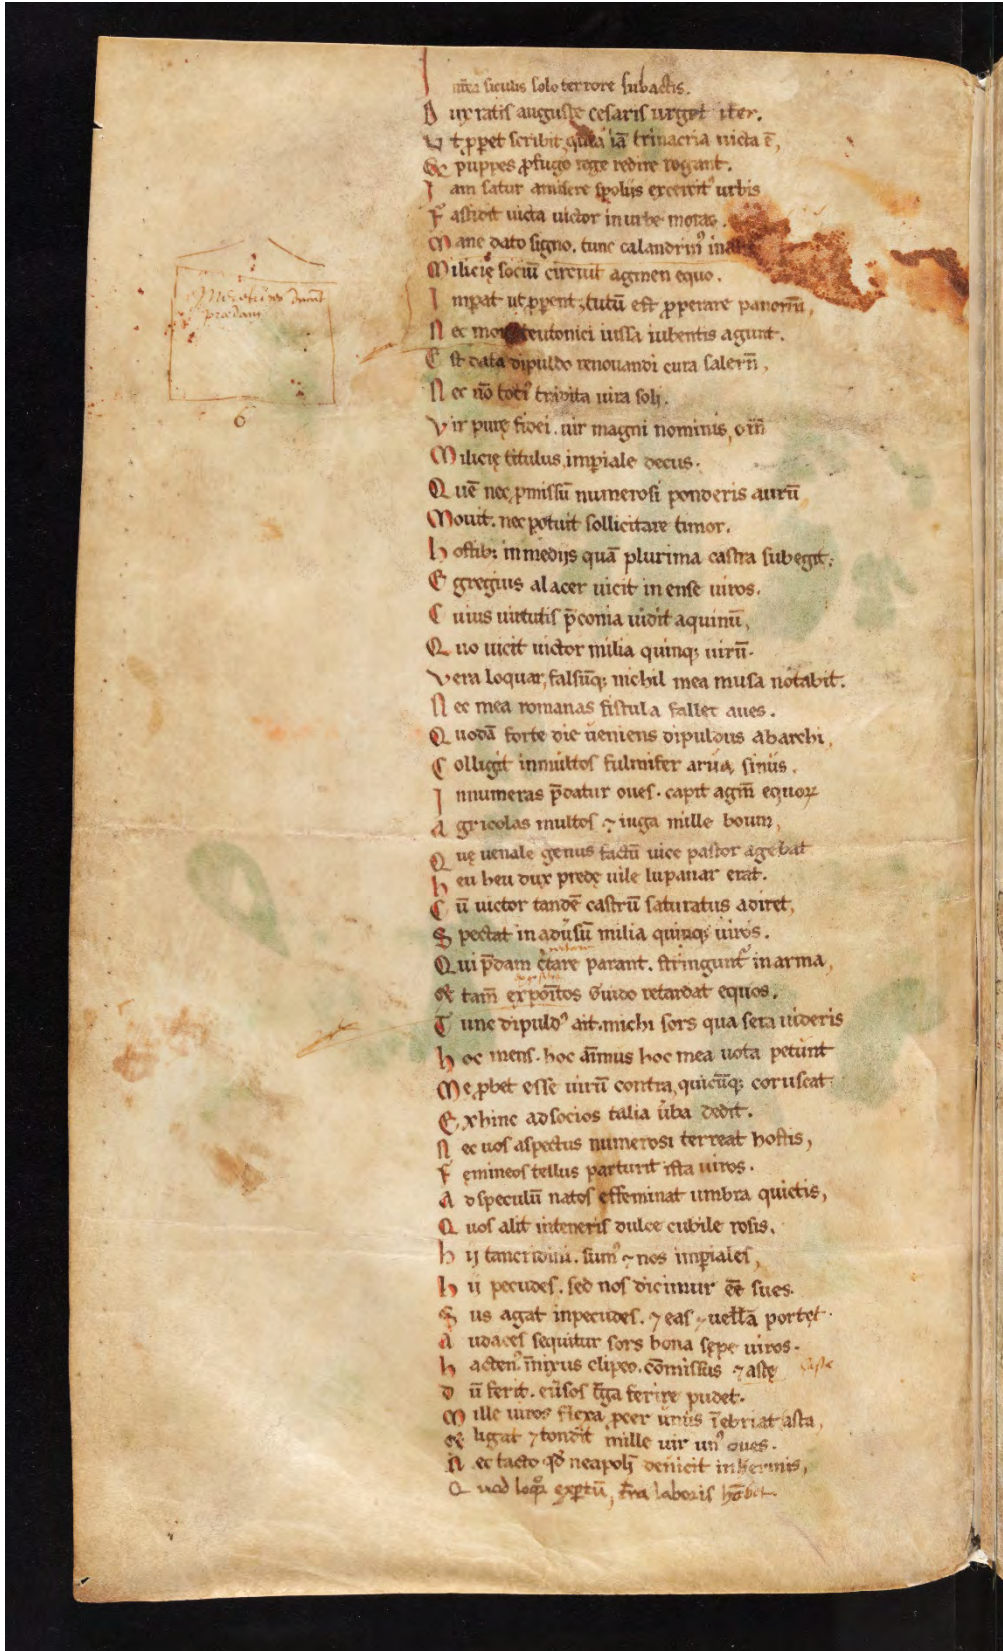 siculis solo terrore subactis.
Dux ratis auguste cesaris urget iter.
Vt ꝓpet scribit, quia iā trinacria uicta ē,
Et puppes ꝓfugo rege redire rogant.
Iam satur amisere spolijs exercit᷒ urbis
Fastidit uicta uictor in urbe moras.
Mane dato signo. tunc calandrin᷒
Milicię sociū circuit agmen equo.
Imꝑat ut ꝓpent, tutū est ꝓperare panormū,
Nec teutonici iussa iubentis agunt.
Est data dipuldo renouandi cura salern̄,
Nec nō toti᷒ tradita cura soli.
Vir purę fidei. uir magni nominis, om̄
Milicię titulus, imꝑiale decus.
Quē nec ꝓmissū numerosi ponderis aurū
Mouit. nec potuit sollicitare timor.
Hostib; in medijs quā plurima castra subegit.
Egregius alacer uicit in ense uiros.
Cuius uirtutis p̄conia uidit aquinū,
Quo uicit uictor milia quinq; uirū.
Vera loquar, falsūq; nichil mea musa notabit.
Nec mea romanas fistula fallet aues.
Quodā forte die ueniens dipuldus ab archi,
Colligit in multos fulmifer arua sinus.
Innumeras p̄datur oues. capit agm̄ equoꝝ
Agricolas multos ⁊ iuga mille boum,
Quę uenale genus factū uice pastor agebat
Heu heu dux predę uile lupanar erat.
Cū uictor tandē castrū saturatus adiret,
Spectat in adūsū milia quinq; uiros.
Qui p̄dam c̄tare parant. stringunt᷒ in arma,
Et tam̄ expoītos Guido retardat equos.
Tunc dipuld᷒ ait. michi sors qua seta uideris
Hoc mens. hoc animus hoc mea uota petunt
Me ꝓbet esse uirū contra, quicūq; coruscat
Ex hinc ad socios talia ūba dedit.
Nec uos aspectus numerosi terreat hostis,
Fęmineos tellus parturit ista uiros.
Ad speculū natos effeminat umbra quietis,
Quos alit in teneris dulce cubile rosis.
Hij tancridini. sum᷒ ⁊ nos imꝑiales,
Hij pecudes. sed nos dicimur ēē sues.
Sus agat in pecudes. ⁊ eas ⁊ uellā portet.
Audaces sequitur sors bona sępe uiros.
Hacten᷒ īnixus clipeo. cōmissus ⁊ astę hastę
Dū ferit. eūsos t̄ga ferire pudet.
Mille uiros flexa ꝓcer unius īebriat asta,
Et ligat ⁊ tondit mille uir un᷒ oues.
Nec tacto qd̄ neapolī deuicit inhermis,
Quod loqr̄ exꝑtū, t̄ra laboris habet.
Milites ducunt
prædam
6